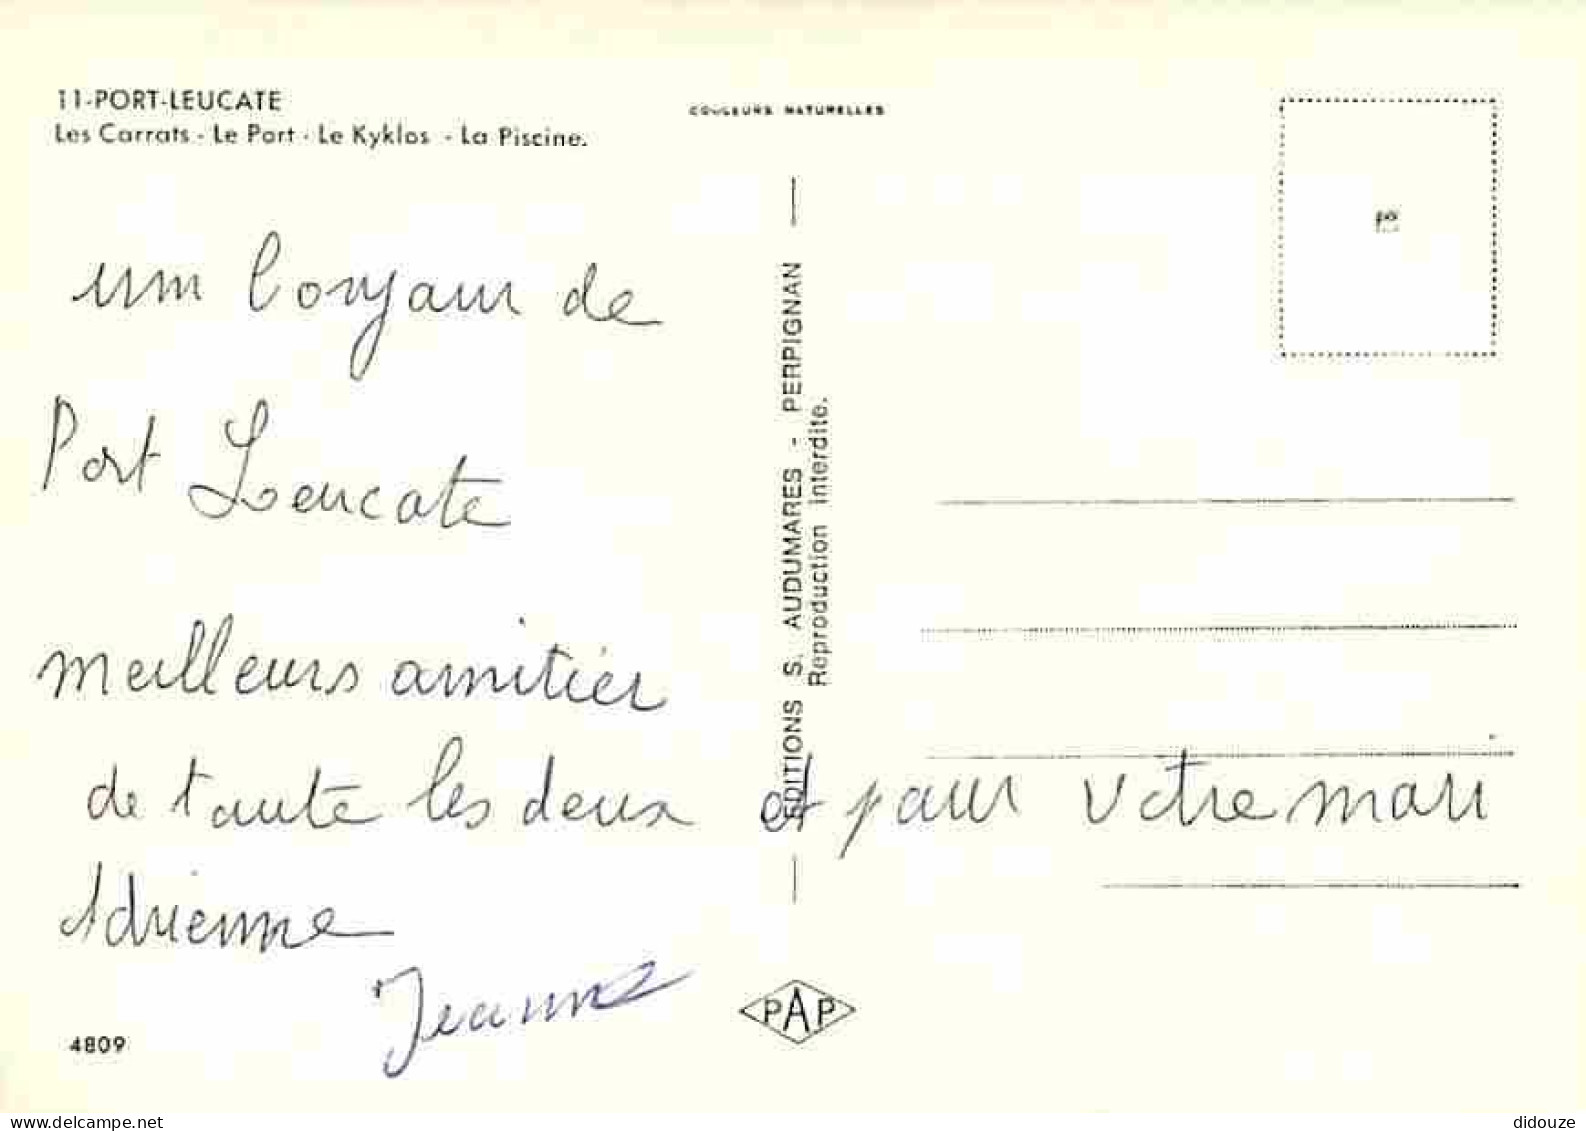 11-PORT-LEUCATE
Les Carrats - Le Port - Le Kyklos - La Piscine.
COULEURS NATURELLES
um bonjour de
Port Leucate
meilleurs amitier
de toute les deux et pour votre mari
Adrienne
Jeanne
4809
EDITIONS S. AUDUMARES - PERPIGNAN
Reproduction interdite.
PAP
didouze